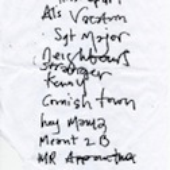 Als Vacation
Sgt Major
Neighbours
Stranger
Kenny
Cornish town
hey Manz
Meant 2 B
MR